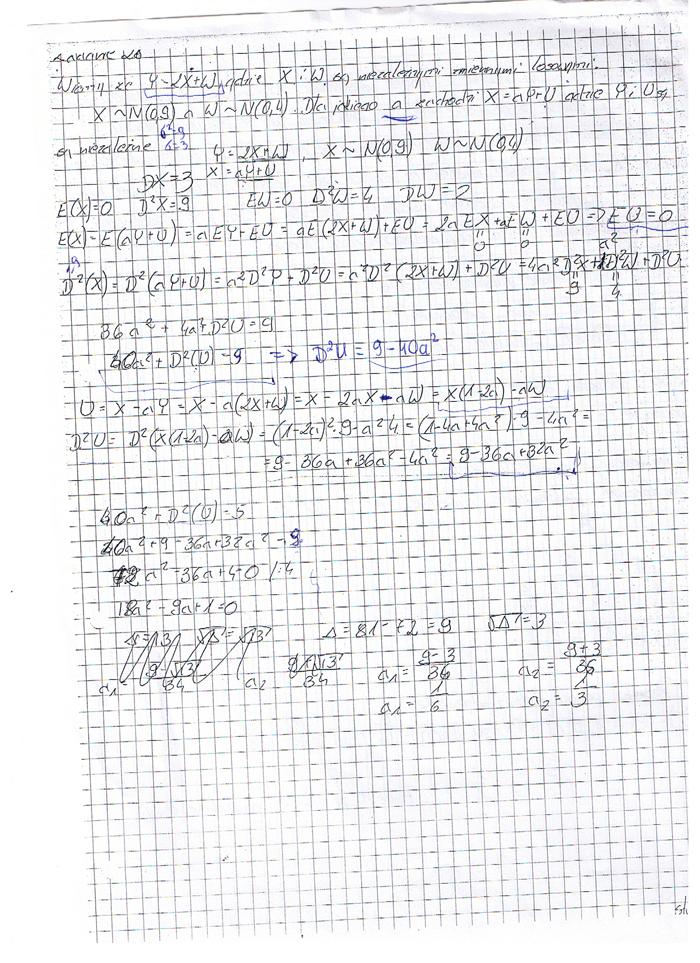 Zadanie 20
Wiemy że Y = 2X+W, gdzie X i W są niezależnymi zmiennymi losowymi.
X ~ N(0,9) a W ~ N(0,4). Dla jakiego a zachodzi X = aY+U gdzie Y i U są
są niezależne Y = 2X+W , X ~ N(0,9) W ~ N(0,4)
X = aY+U
DX = 3
E(X)=0 D²X=9 EW=0 D²W=4 DW=2
E(X) = E(aY+U) = aEY+EU = aE(2X+W)+EU = 2aEX+aEW+EU => EU=0
0 0 a²
9
D²(X) = D²(aY+U) = a²D²Y+D²U = a²D²(2X+W)+D²U = 4a²D²X+D²W+D²U
9 4
36a² + 4a²+D²U = 9
40a² + D²(U) = 9 => D²U = 9-40a²
U = X-aY = X-a(2X+W) = X-2aX-aW = X(1-2a)-aW
D²U = D²(X(1-2a)-aW) = (1-2a)²·9-a²4 = (1-4a+4a²)·9-4a² =
= 9-36a+36a²-4a² = 9-36a+32a²
40a² + D²(U) = 5
40a²+9-36a+32a² = 9
72a²-36a+4=0 /:4
18a²-9a+1=0
Δ = 81-72 = 9 √Δ = 3
a₁ = 9-3/36 a₂ = 9+3/36
a₁ = 1/6 a₂ = 1/3